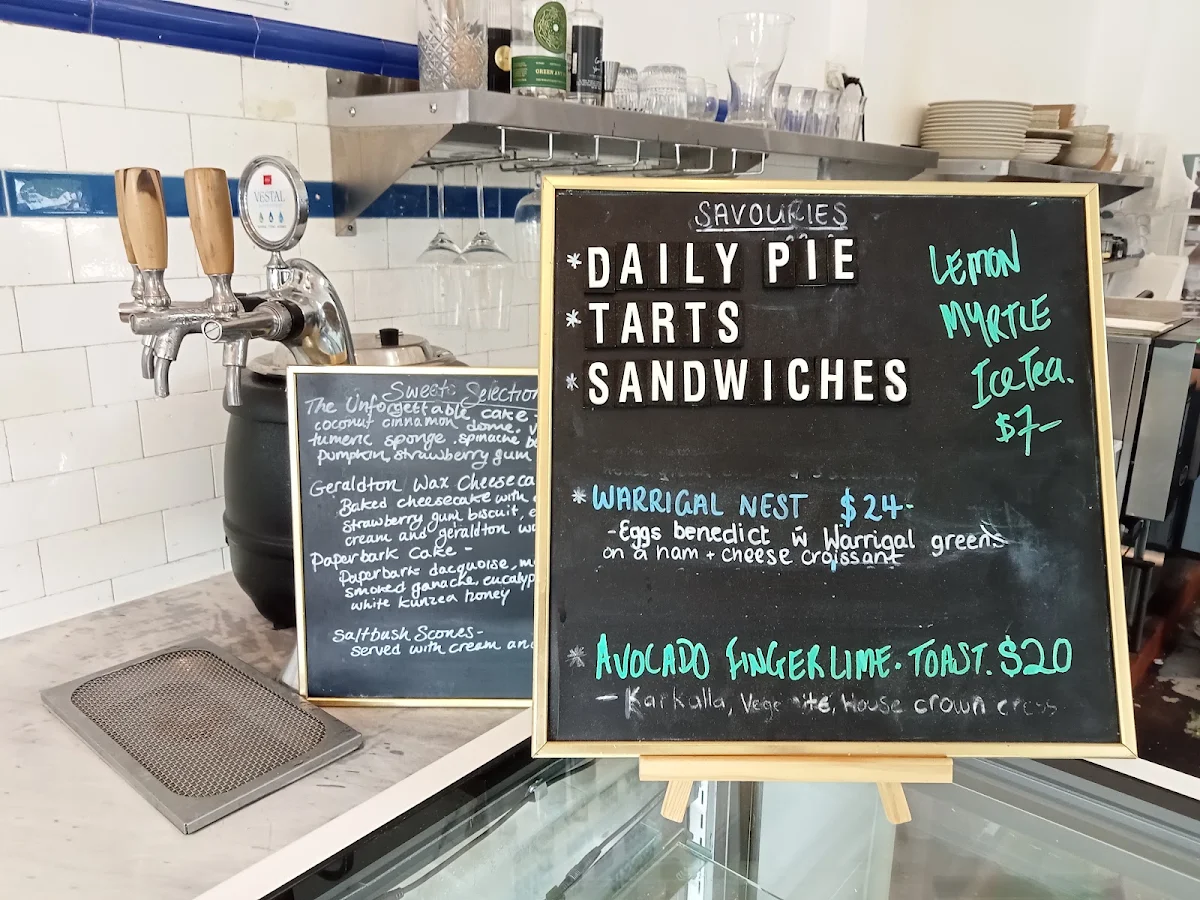 GREEN ANT
VESTAL
Sweets Selection
The Unforgettable cake -
coconut cinnamon dome.
tumeric sponge, spinache
pumpkin, strawberry gum
Geraldton Wax Cheeseca
Baked cheesecake with
strawberry gum biscuit,
cream and geraldton
Paperbark Cake -
Paperbark dacquoise,
smoked ganache, eucalyp
white kunzea honey
Saltbush Scones -
served with cream and
SAVOURIES
* DAILY PIE
* TARTS
* SANDWICHES
LEMON
MYRTLE
Ice Tea.
$7-
* WARRIGAL NEST $24-
- Eggs benedict w Warrigal greens
on a ham + cheese croissant
* AVOCADO FINGERLIME. TOAST. $20
- Karkalla, Vege ite, House crown cress